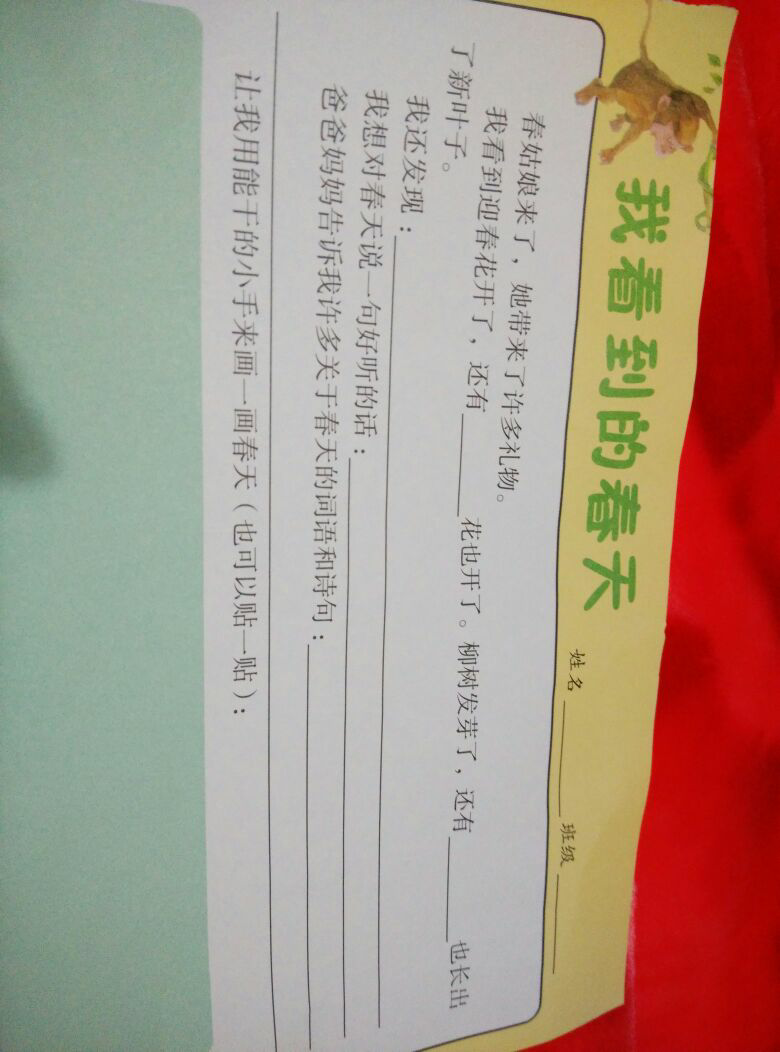 我看到的春天
姓名________班级________
春姑娘来了，她带来了许多礼物。
我看到迎春花开了，还有________花也开了。柳树发芽了，还有________也长出
了新叶子。
我还发现：________
我想对春天说一句好听的话：________
爸爸妈妈告诉我许多关于春天的词语和诗句：________
让我用能干的小手来画一画春天（也可以贴一贴）：